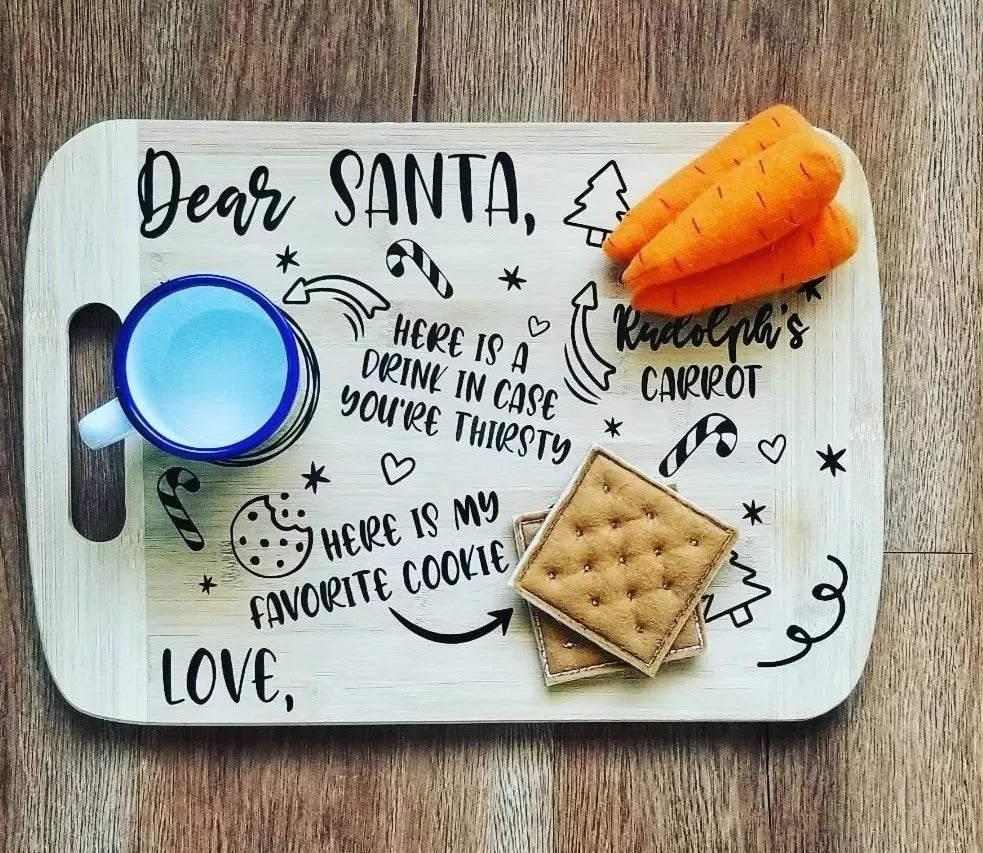 Dear SANTA,
HERE IS A
DRINK IN CASE
YOU'RE THIRSTY
Rudolph's
CARROT
HERE IS MY
FAVORITE COOKIE
LOVE,